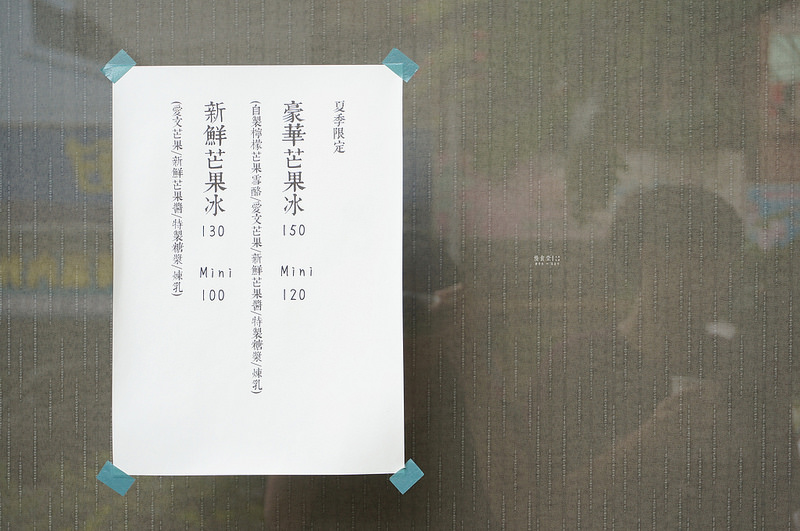 夏季限定
豪華芒果冰 150
Mini 120
(自製檸檬芒果雪酪/愛文芒果/新鮮芒果醬/特製糖漿/煉乳)
新鮮芒果冰 130
Mini 100
(愛文芒果/新鮮芒果醬/特製糖漿/煉乳)